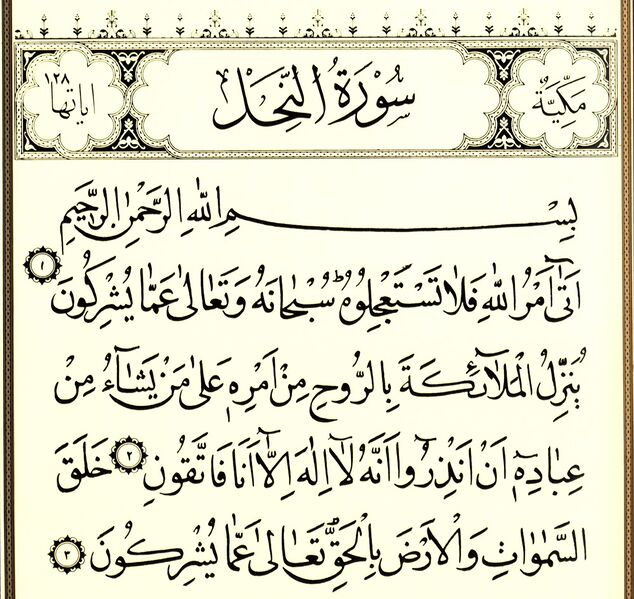 مَكِّيَّةٌ
سُورَةُ النَّحْلِ
اٰيَاتُهَا ١٢٨
بِسْمِ اللّٰهِ الرَّحْمٰنِ الرَّح۪يمِ
اَتٰٓى اَمْرُ اللّٰهِ فَلَا تَسْتَعْجِلُوهُۜ سُبْحَانَهُ وَتَعَالٰى عَمَّا يُشْرِكُونَ ﴿١﴾
يُنَزِّلُ الْمَلٰٓئِكَةَ بِالرُّوحِ مِنْ اَمْرِه۪ عَلٰى مَنْ يَشَٓاءُ مِنْ
عِبَادِه۪ٓ اَنْ اَنْذِرُٓوا اَنَّهُ لَٓا اِلٰهَ اِلَّٓا اَنَا۬ فَاتَّقُونِ ﴿٢﴾ خَلَقَ
السَّمٰوَاتِ وَالْاَرْضَ بِالْحَقِّۜ تَعَالٰى عَمَّا يُشْرِكُونَ ﴿٣﴾